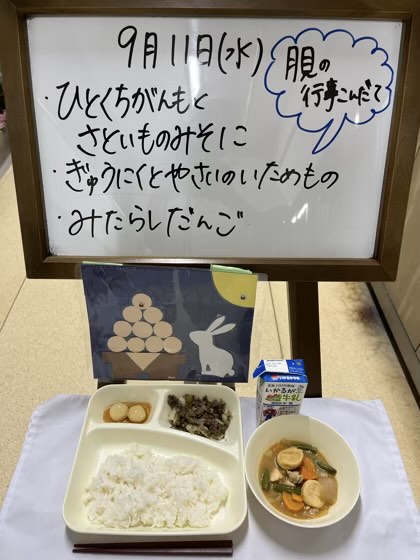 9月11日(水)
月見の
行事こんだて
・ひとくちがんもと
さといものみそに
・ぎゅうにくとやさいのいためもの
・みたらしだんご
いかるが
牛乳